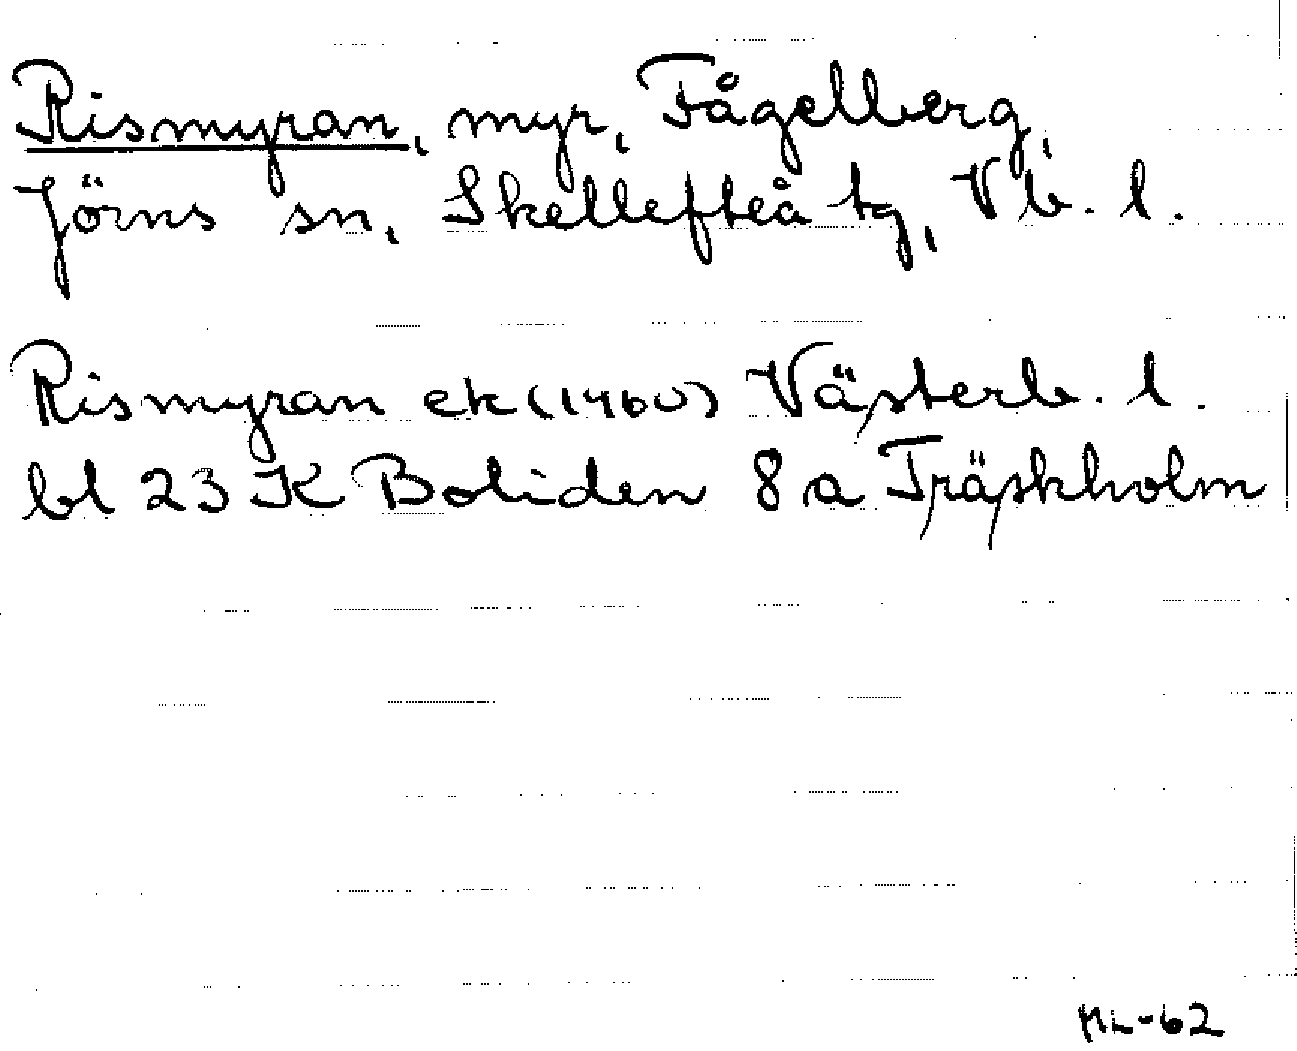 Rismyran, myr, Fågelberg,
Jörns sn, Skellefteå tg, Vb. l.
Rismyran ek (1960) Västerb. l.
bl 23 K Boliden 8 a Träskholm
ML-62